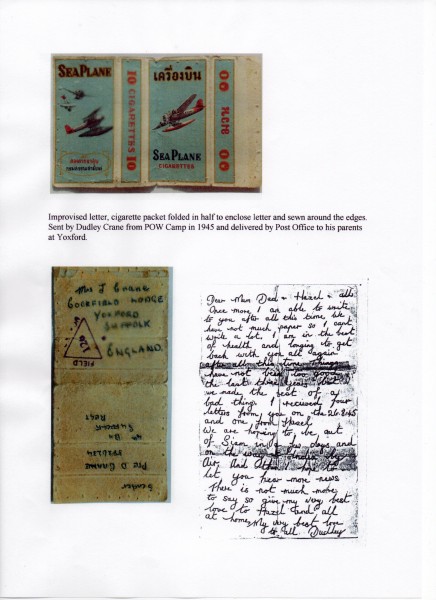 SEA PLANE
10 CIGARETTES 10
เครื่องบิน
SEA PLANE
CIGARETTES
๑๐ ๑๐
Improvised letter, cigarette packet folded in half to enclose letter and sewn around the edges.
Sent by Dudley Crane from POW Camp in 1945 and delivered by Post Office to his parents
at Yoxford.
Mrs J Crane
COCKFIELD LODGE
YOXFORD
SUFFOLK
ENGLAND.
FIELD
Sender
Pte D CRANE
4th Bn
SUFFOLK
REGT
Dear Mum Dad + Hazel + all.
Once more I am able to write
to you after all this time. We
have not much paper so I cant
write a lot. I am in the best
of health and longing to get
back with you all again
after all this time. Things
have not been too good
the last three years but
we made the best of a
bad thing. I received four
letters from you on the 26.8.45
and one from
We are hoping to be out
of Siam in a few days and
on the way to England by
Air. And
let you hear more news
There is not much more
to say so give my very best
love to Hazel and all
at home, My very best love
to all. Dudley